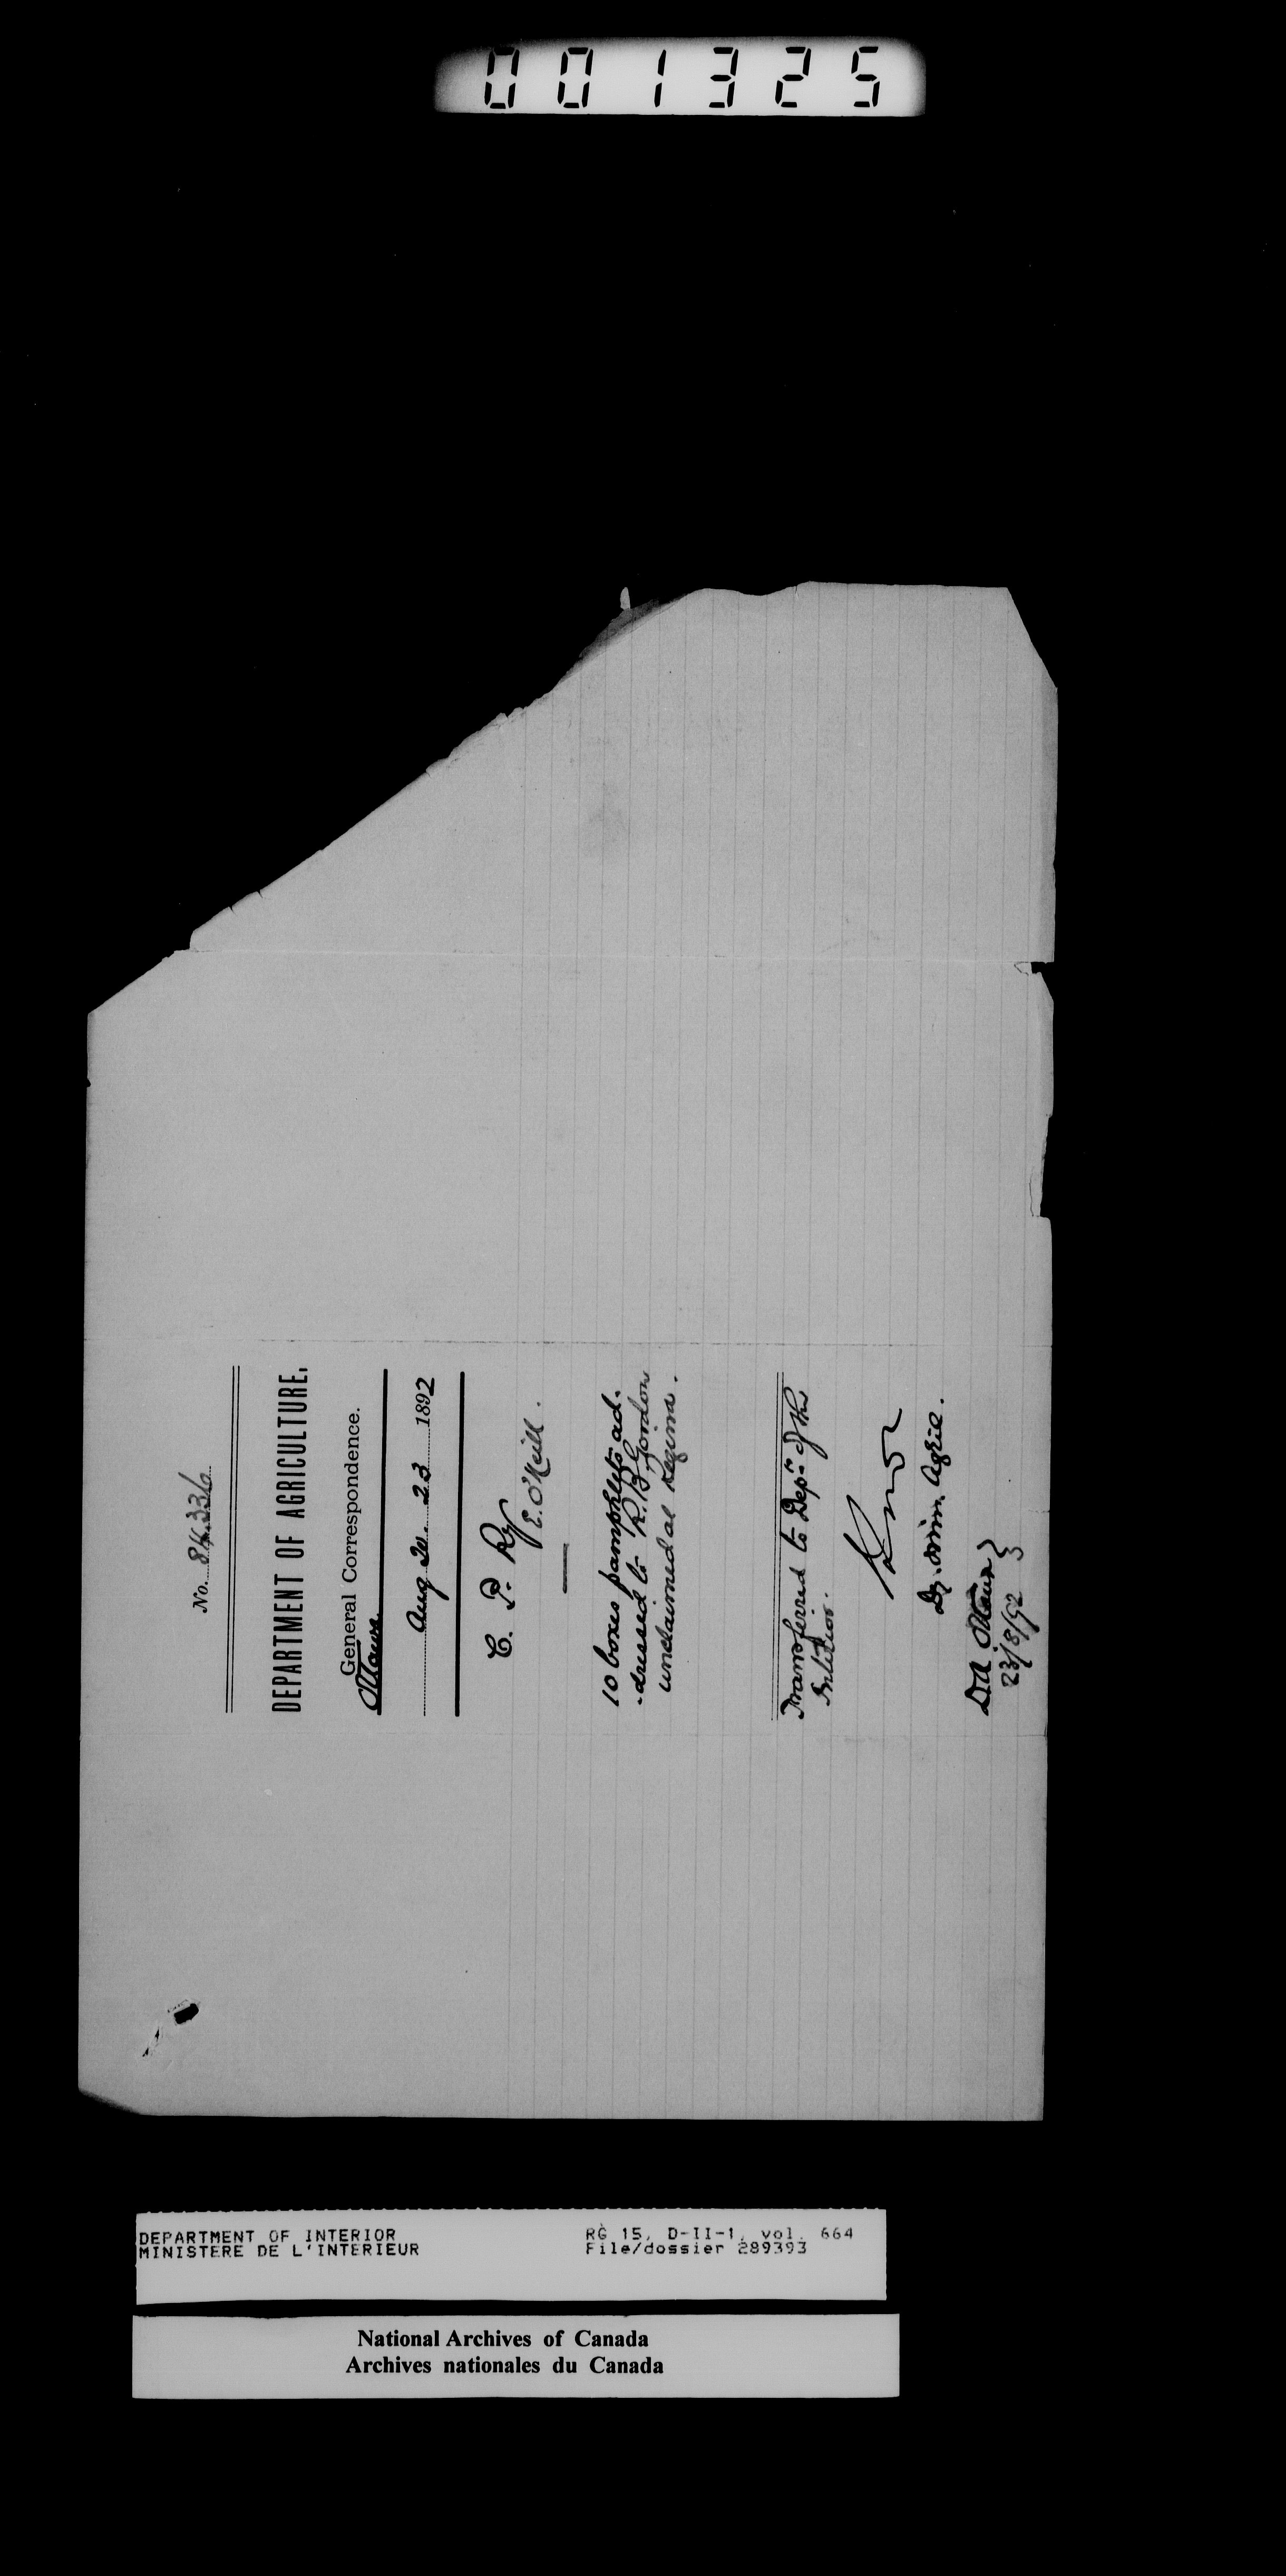 001325
No. 84.336
DEPARTMENT OF AGRICULTURE.
General Correspondence.
Ottawa
Aug 20. 23 1892
C. P. Ry
E. O'Neill.
10 boxes pamphlets ad-
-dressed to R. B. Gordon
unclaimed at Regina.
Transferred to Depn. of the
Interior.
D. Minr. Agric.
D.A. Ottawa }
23/8/92 }
DEPARTMENT OF INTERIOR RG 15, D-II-1, vol. 664
MINISTERE DE L'INTERIEUR File/dossier 289393
National Archives of Canada
Archives nationales du Canada